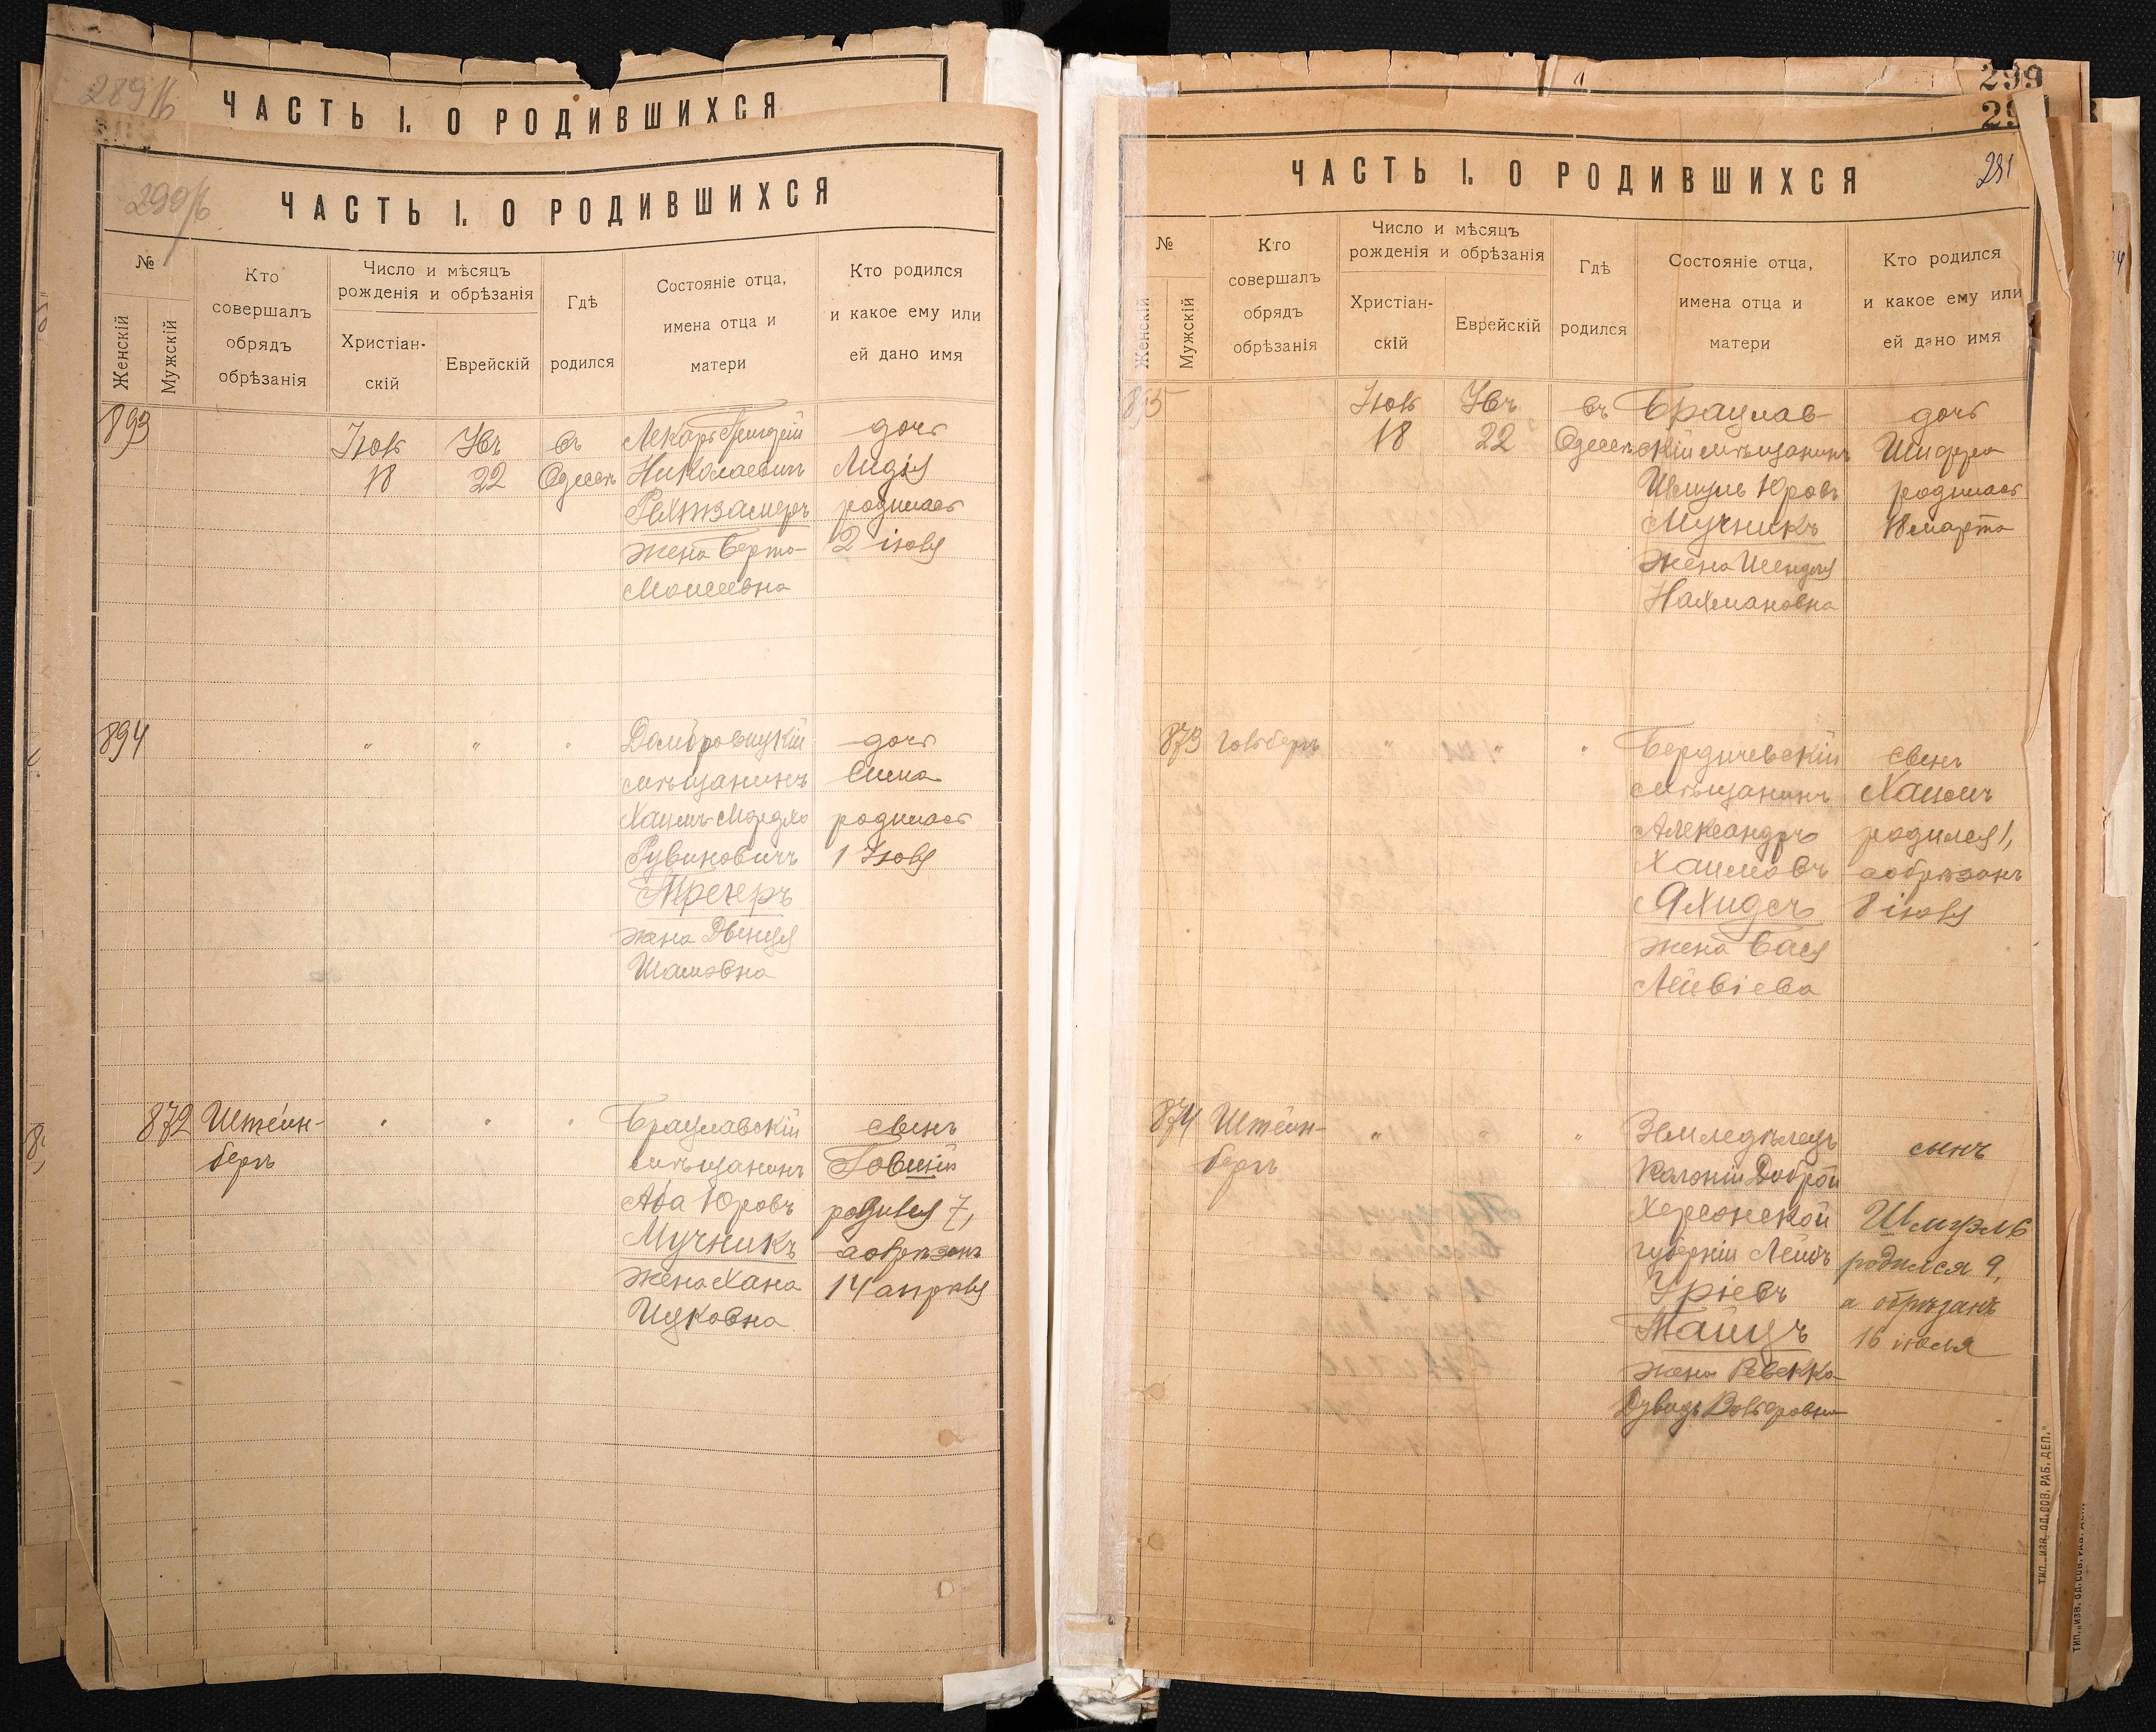 289 об
ЧАСТЬ I. О РОДИВШИХСЯ
290 об
ЧАСТЬ I. О РОДИВШИХСЯ
№
Женскій
Мужскій
Кто
совершалъ
обрядъ
обрѣзанія
Число и мѣсяцъ
рожденія и обрѣзанія
Христіан-
скій
Еврейскій
Гдѣ
родился
Состояніе отца,
имена отца и
матери
Кто родился
и какое ему или
ей дано имя
893
Іюль
18
22
въ
Одессѣ
Лекарь
Николаевичъ
жена Берта
Моисеевна
дочь
Лидія
родилась
2 іюля
894
"
"
"
Домбровицкій
мѣщанинъ
Хаимъ-Мордко
Рувиновичъ
Трегеръ
жена Двейця
дочь
Сима
родилась
1 Іюля
872
Штейн-
бергъ
"
"
"
Брацлавскій
мѣщанинъ
Аба Юровъ
Мучникъ
жена Хана
Ицковна
сынъ
Товшій
родился 7,
а обрѣзанъ
14 апрѣля
299
291
ЧАСТЬ I. О РОДИВШИХСЯ
№
Женскій
Мужскій
Кто
совершалъ
обрядъ
обрѣзанія
Число и мѣсяцъ
рожденія и обрѣзанія
Христіан-
скій
Еврейскій
Гдѣ
родился
Состояніе отца,
имена отца и
матери
Кто родился
и какое ему или
ей дано имя
895
Іюль
18
22
въ
Одессѣ
Брацлав-
скій мѣщанинъ
Шмуль Юровъ
Мучникъ
жена Шендля
Нахмановна
дочь
Шифра
родилась
18 марта
873
Гольбергъ
"
"
"
Бердичевскій
мѣщанинъ
Александръ
Хаимовъ
Яхидсъ
жена Бася
Лейбіева
сынъ
Хаимъ
родился 1,
а обрѣзанъ
8 іюля
874
Штейн-
бергъ
"
"
"
Земледѣлецъ
Колоніи Доброй
Херсонской
губерніи Лейбъ
Уріевъ
Тайцъ
жена Ревекка
Дувидъ-Вольфовна
сынъ
Шмуэль
родился 9,
а обрѣзанъ
16 июля
ТИП. „ИЗВ. ОД. СОВ. РАБ. ДЕП."